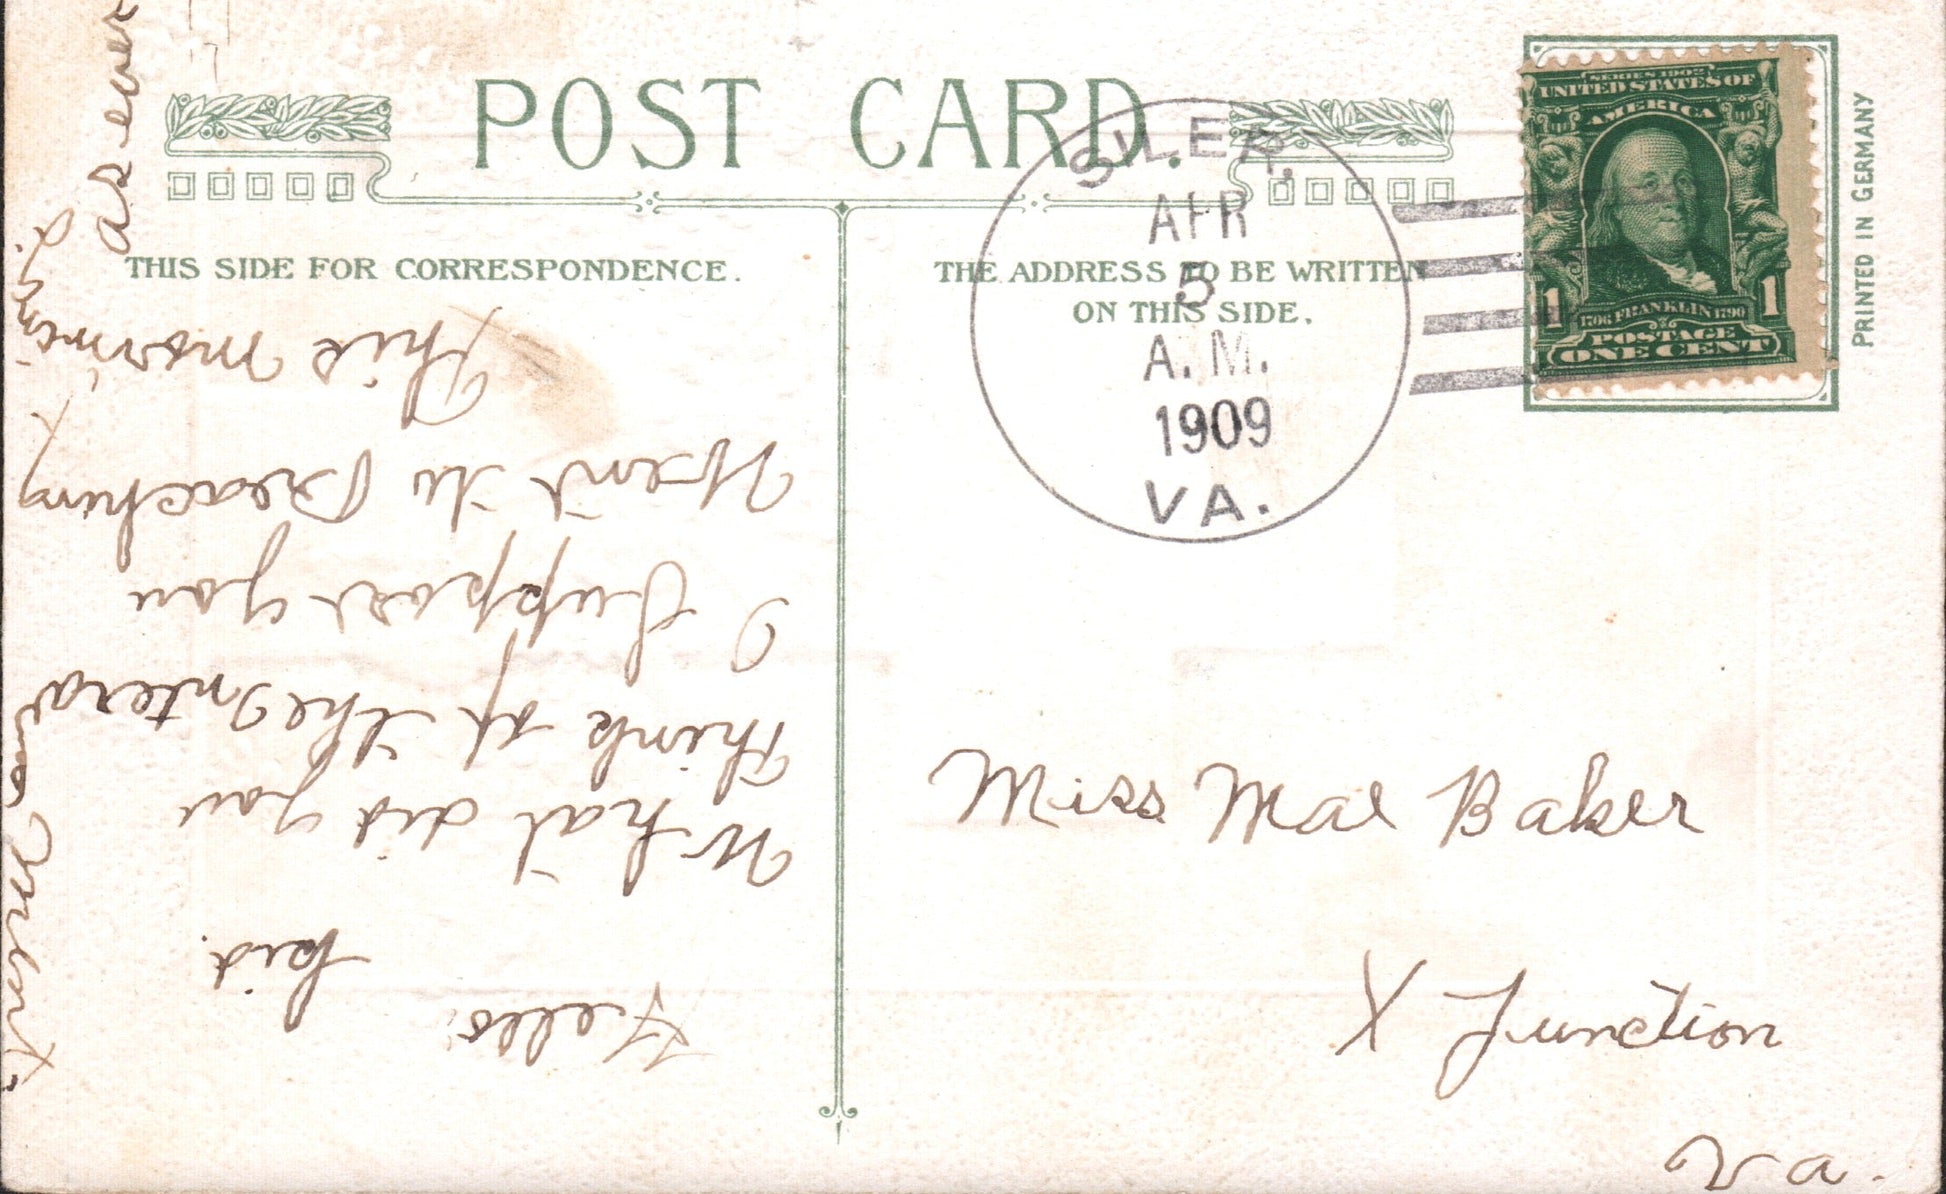 POST CARD.
THIS SIDE FOR CORRESPONDENCE.
THE ADDRESS TO BE WRITTEN
ON THIS SIDE.
SILER.
APR
5
A.M.
1909
VA.
SERIES 1902
UNITED STATES OF
AMERICA
1706 FRANKLIN 1790
POSTAGE
1 ONE CENT 1
PRINTED IN GERMANY
Miss Mae Baker
X Junction
Va.
Hello
kid.
What did you
Think of the Intera
I Suppose you
Went to Preaching
This morning
as ever